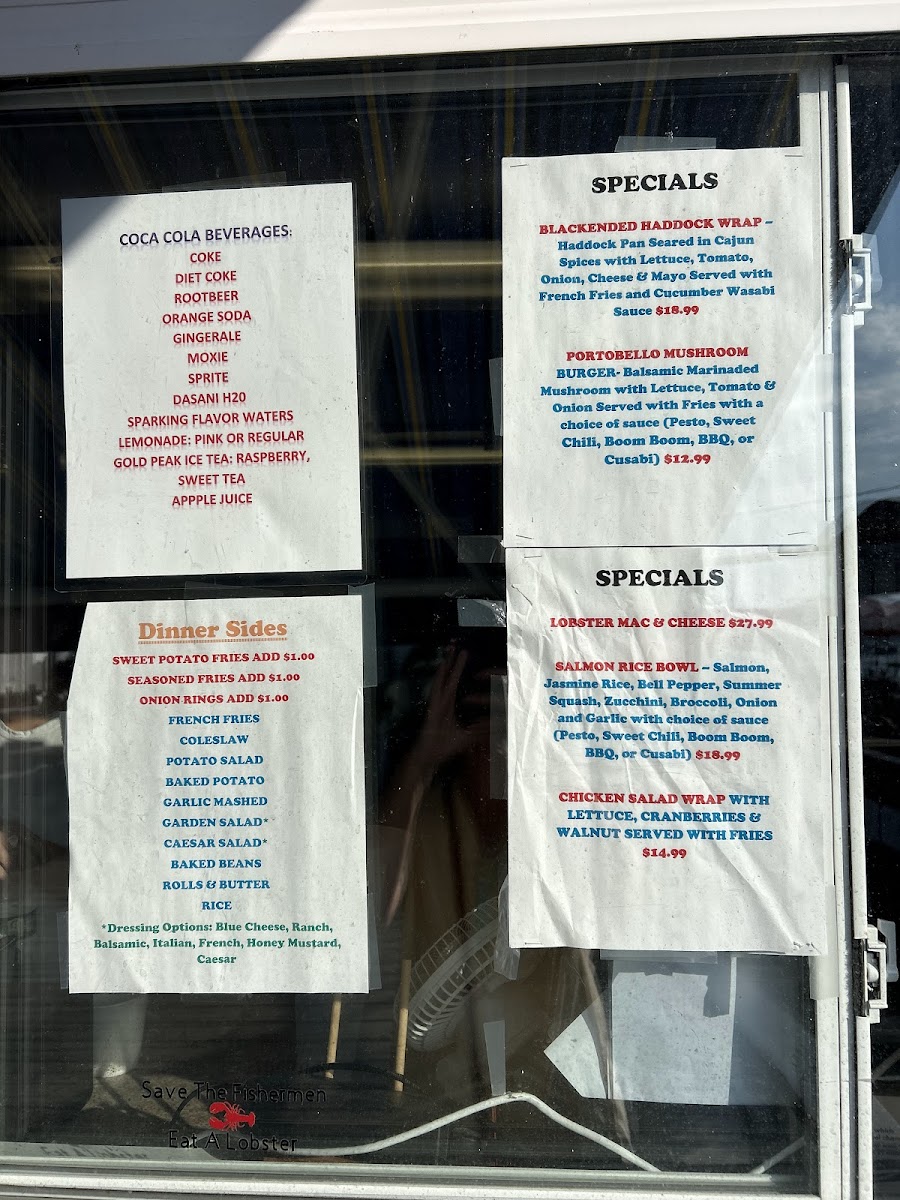 COCA COLA BEVERAGES:
COKE
DIET COKE
ROOTBEER
ORANGE SODA
GINGERALE
MOXIE
SPRITE
DASANI H20
SPARKING FLAVOR WATERS
LEMONADE: PINK OR REGULAR
GOLD PEAK ICE TEA: RASPBERRY,
SWEET TEA
APPPLE JUICE
Dinner Sides
SWEET POTATO FRIES ADD $1.00
SEASONED FRIES ADD $1.00
ONION RINGS ADD $1.00
FRENCH FRIES
COLESLAW
POTATO SALAD
BAKED POTATO
GARLIC MASHED
GARDEN SALAD*
CAESAR SALAD*
BAKED BEANS
ROLLS & BUTTER
RICE
*Dressing Options: Blue Cheese, Ranch,
Balsamic, Italian, French, Honey Mustard,
Caesar
SPECIALS
BLACKENDED HADDOCK WRAP –
Haddock Pan Seared in Cajun
Spices with Lettuce, Tomato,
Onion, Cheese & Mayo Served with
French Fries and Cucumber Wasabi
Sauce $18.99
PORTOBELLO MUSHROOM
BURGER- Balsamic Marinaded
Mushroom with Lettuce, Tomato &
Onion Served with Fries with a
choice of sauce (Pesto, Sweet
Chili, Boom Boom, BBQ, or
Cusabi) $12.99
SPECIALS
LOBSTER MAC & CHEESE $27.99
SALMON RICE BOWL – Salmon,
Jasmine Rice, Bell Pepper, Summer
Squash, Zucchini, Broccoli, Onion
and Garlic with choice of sauce
(Pesto, Sweet Chili, Boom Boom,
BBQ, or Cusabi) $18.99
CHICKEN SALAD WRAP WITH
LETTUCE, CRANBERRIES &
WALNUT SERVED WITH FRIES
$14.99
Save The Fishermen
Eat A Lobster